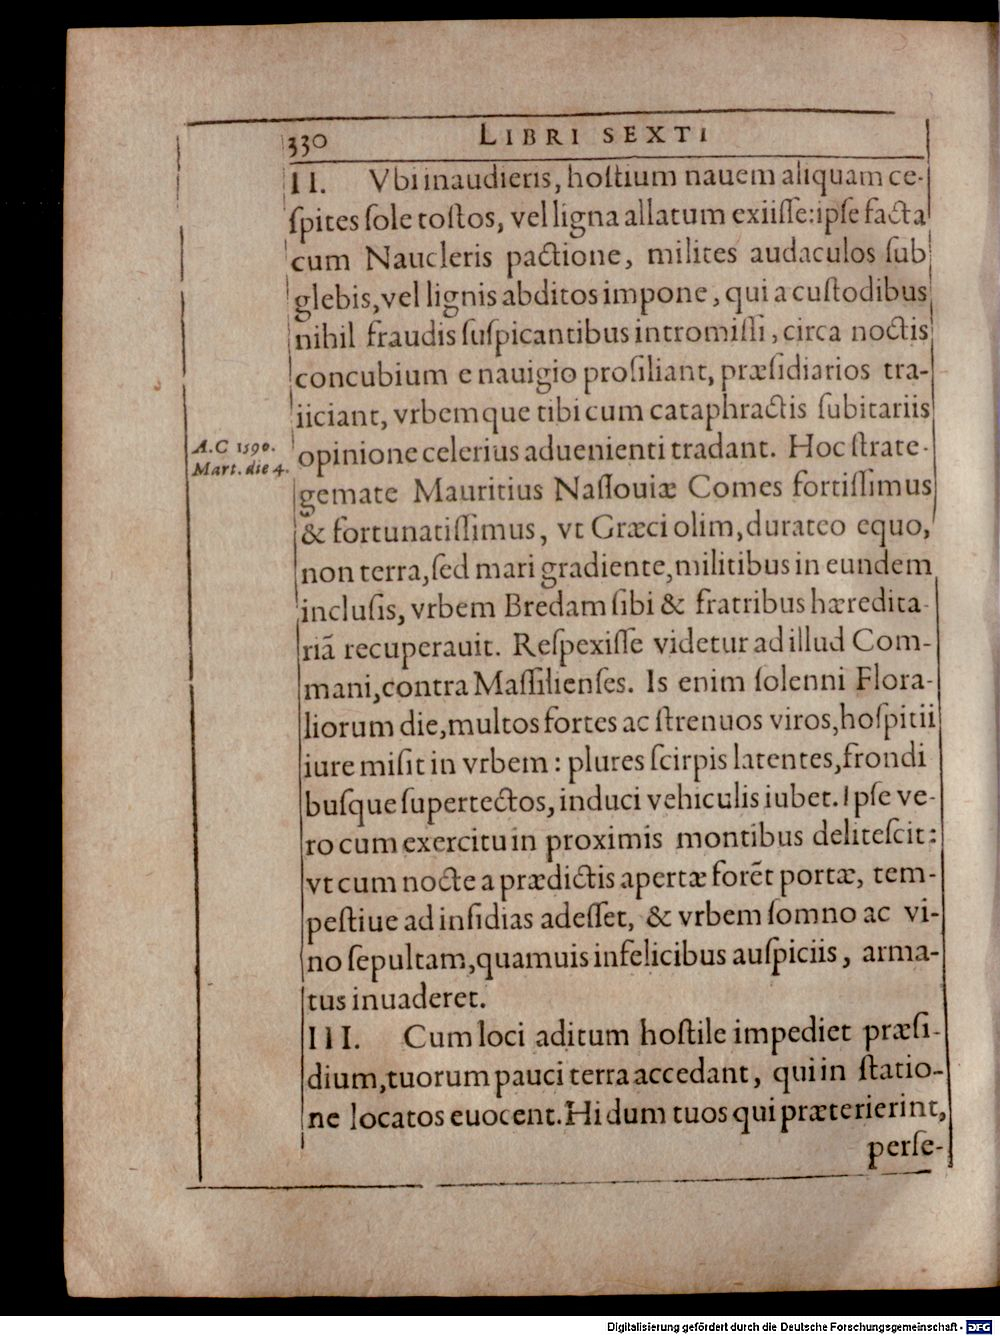 330 LIBRI SEXTI
II. Vbi inaudieris, hoſtium nauem aliquam ce-
ſpites ſole toſtos, vel ligna allatum exiiſſe: ipſe facta
cum Naucleris pactione, milites audaculos ſub
glebis, vel lignis abditos impone, qui a cuſtodibus
nihil fraudis ſuſpicantibus intromiſſi, circa noctis
concubium e nauigio proſiliant, præſidiarios tra-
iiciant, vrbemque tibi cum cataphractis ſubitariis
A.C 1590.
Mart. die 4.
opinione celerius aduenienti tradant. Hoc ſtrate-
gemate Mauritius Naſſouiæ Comes fortiſſimus
& fortunatiſſimus, vt Græci olim, durateo equo,
non terra, ſed mari gradiente, militibus in eundem
incluſis, vrbem Bredam ſibi & fratribus hæredita-
riā recuperauit. Reſpexiſſe videtur ad illud Com-
mani, contra Maſſilienſes. Is enim ſolenni Flora-
liorum die, multos fortes ac ſtrenuos viros, hoſpitii
iure miſit in vrbem: plures ſcirpis latentes, frondi
buſque ſupertectos, induci vehiculis iubet. Ipſe ve-
ro cum exercitu in proximis montibus deliteſcit:
vt cum nocte a prædictis apertæ forēt portæ, tem-
peſtiue ad inſidias adeſſet, & vrbem ſomno ac vi-
no ſepultam, quamuis infelicibus auſpiciis, arma-
tus inuaderet.
III. Cum loci aditum hoſtile impediet præſi-
dium, tuorum pauci terra accedant, qui in ſtatio-
ne locatos euocent. Hi dum tuos qui præterierint,
perſe-
Digitalisierung gefördert durch die Deutsche Forschungsgemeinschaft - DFG